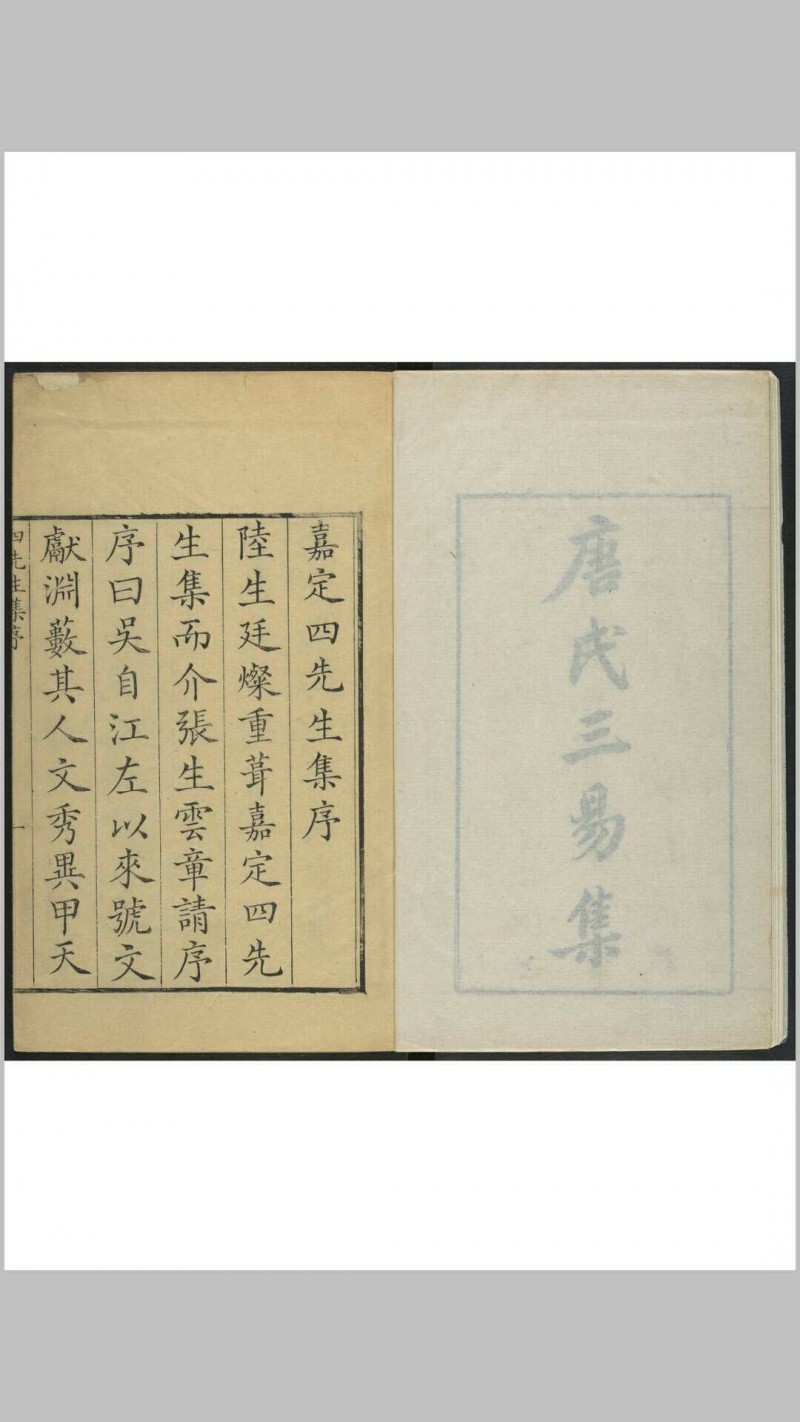 唐氏三易集
嘉定四先生集序
陸生廷燦重葺嘉定四先
生集而介張生雲章請序
序曰吳自江左以來號文
獻淵藪其人文秀異甲天
四先生集序
一